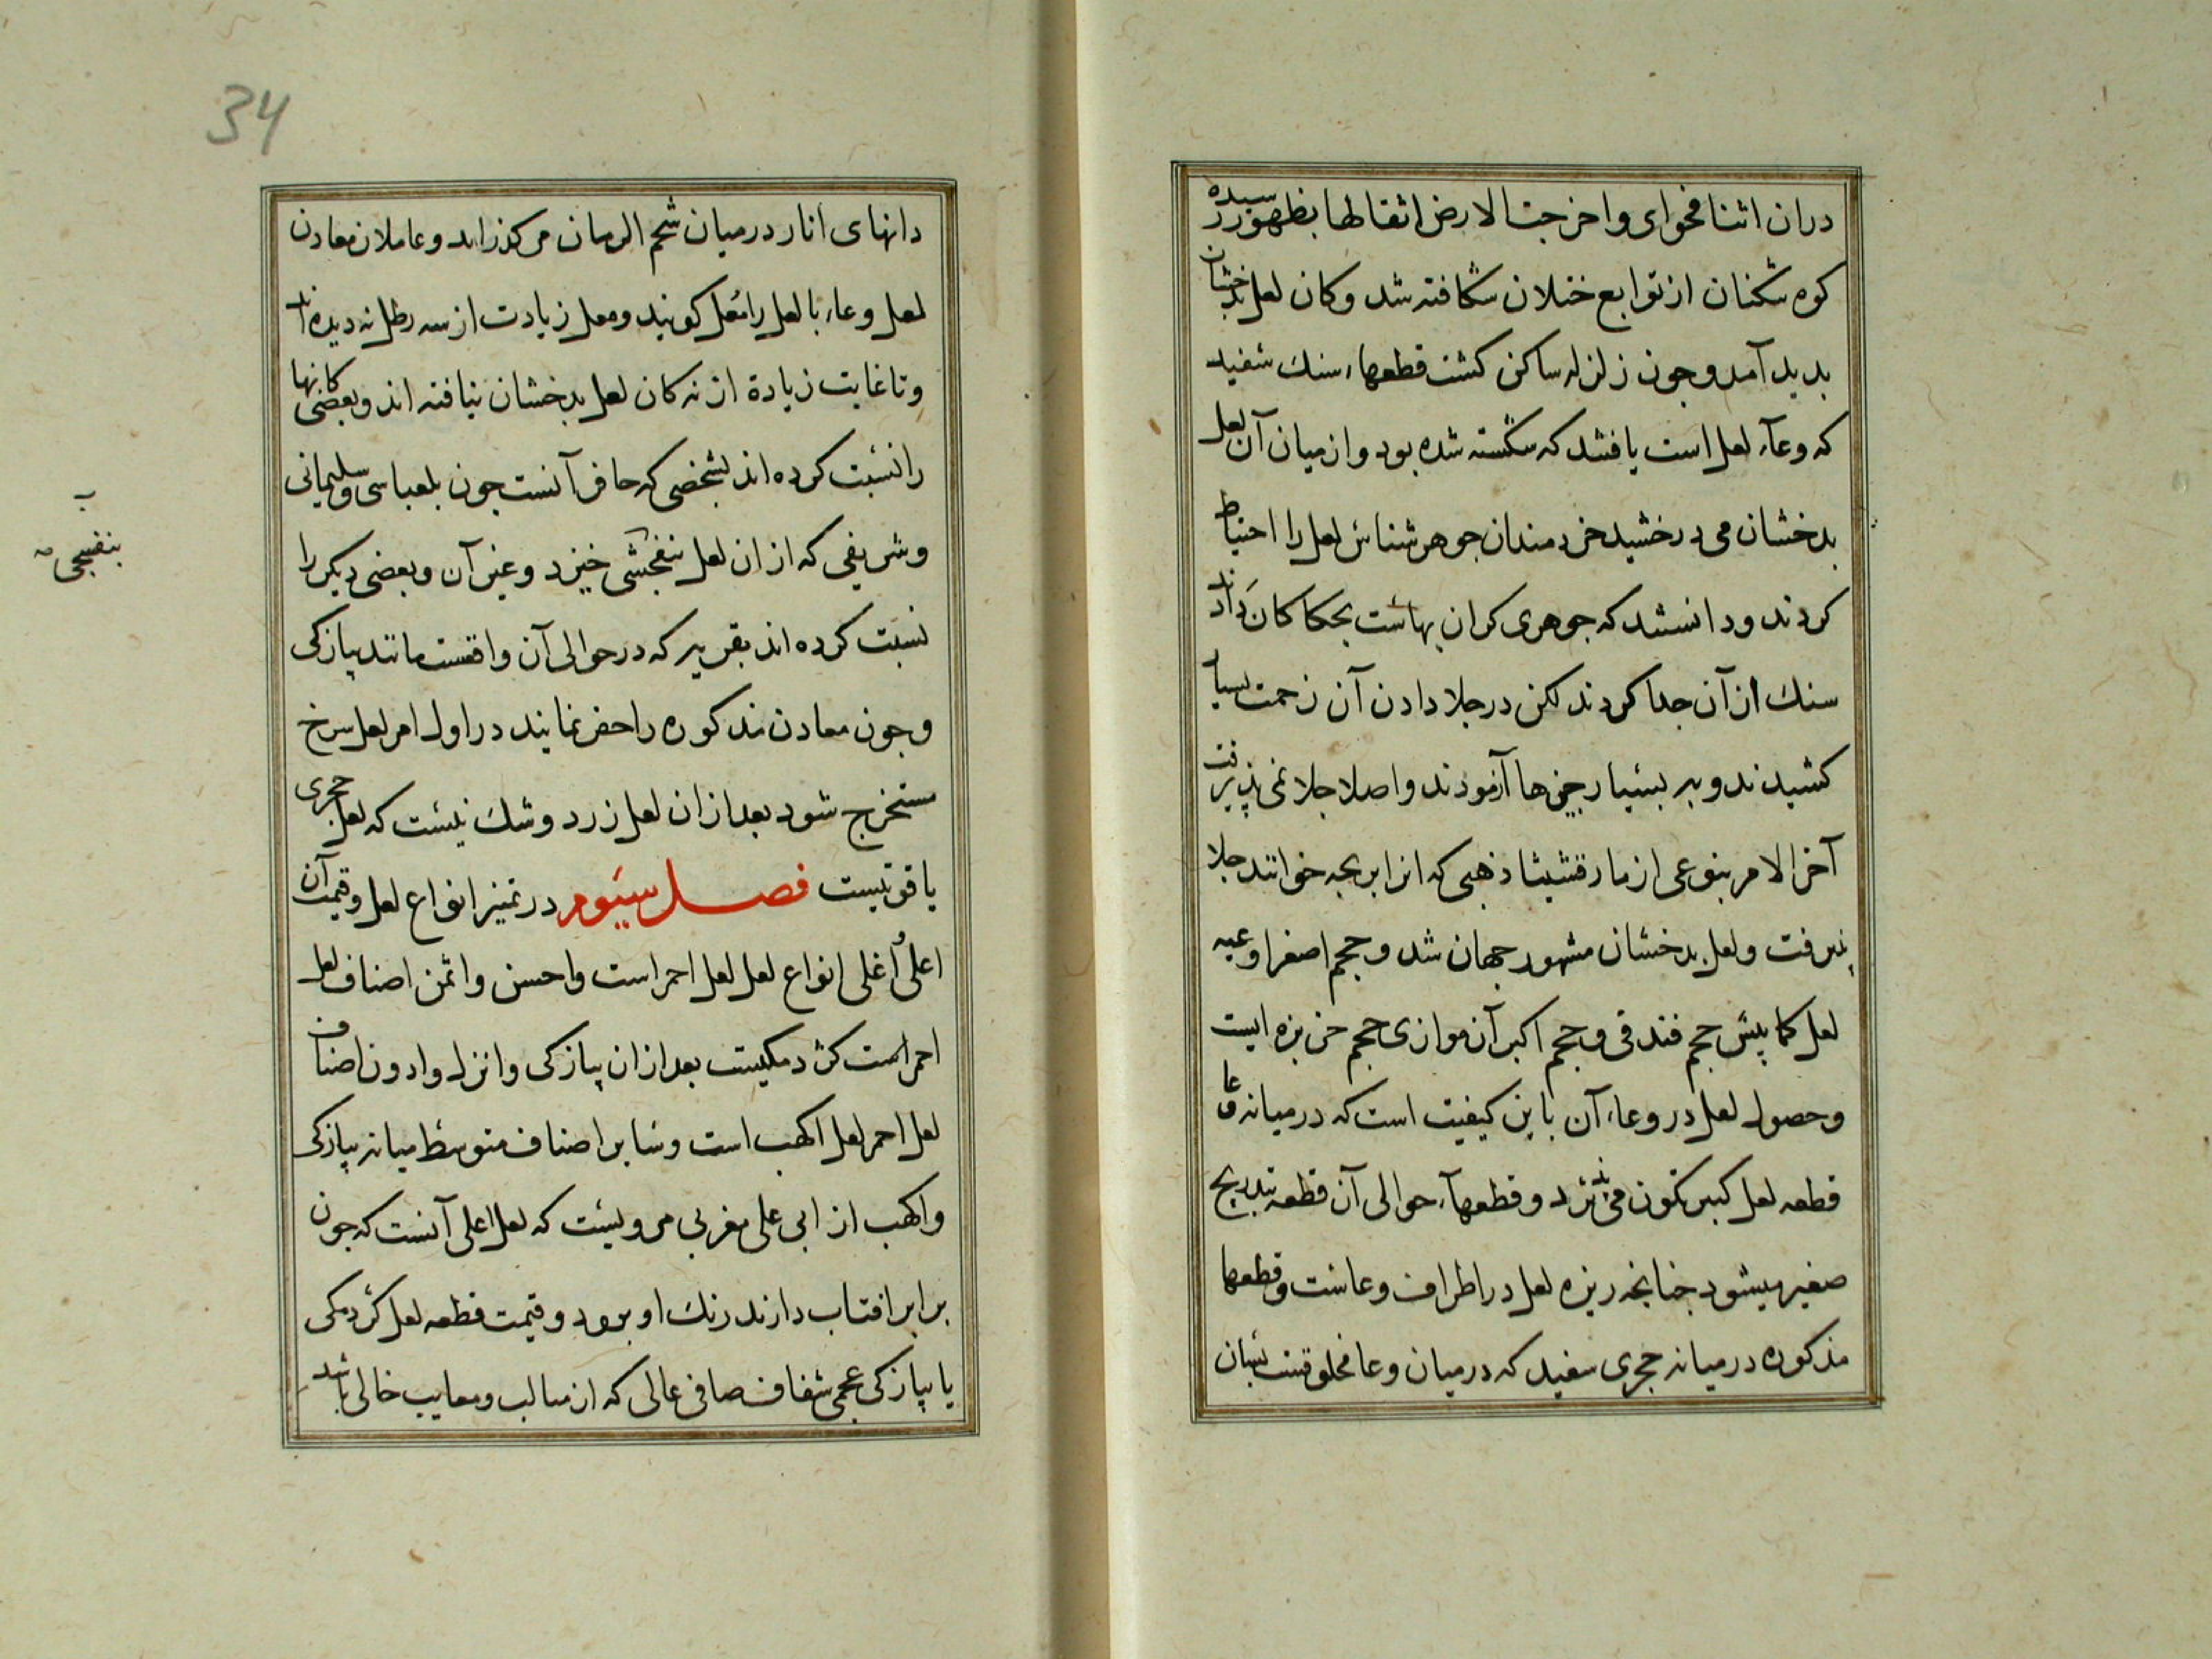 دران اثنا فحوای واخرجت الارض اثقالها بظهور رسیده
کوه شکنان از توابع ختلان شکافته شد وکان لعل بدخشان
بدید آمد وجون زلزله ساکن کشت قطعهاء سنك سفید
که وعاء لعل است یافتند که شکسته شده بود وازمیان آن لعل
بدخشان می درخشید خردمندان جوهرشناس لعل را احتیاط
کردند ودانستند که جوهری کران بهاست بحکاکان دادند
سنك ازآن جدا کردند لکن درجلا دادن آن زحمت بسیار
کشیدند وبر بسیار چیزها آزمودند واصلا جلا نمی پذیرفت
آخر الامر بنوعی از مارقشیشا ذهبی که انرا برنجه خوانند جلا
پذیرفت ولعل بدخشان مشهور جهان شد وحجم اصغر اوعیه
لعل کمابیش حجم فندقی وحجم اکبر آن موازی حجم خربزه ایست
وحصول لعل در وعاء آن باین کیفیت است که درمیانه وعا
قطعه لعل کبیر تکون می پذیرد وقطعهاء حوالی آن قطعه بتدریج
صغیر میشود جنانجه ریزه لعل در اطراف وعاست وقطعها
مذکوره درمیانه حجری سفید که درمیان وعا مخلوقست بسان
34
دانهای انار درمیان شحم الرمان می کذراند وعاملان معادن
لعل وعاء با لعل را مغل کویند ومغل زیادت از سه رطل نه دیده اند
وتا غایت زیادة از نه کان لعل بدخشان نیافته اند وبعضی کانها
را نسبت کرده اند بشخصی که حافر آنست جون بلعباسی وسلیمانی
وشریفی که ازان لعل بنفجشی خیزد وغیر آن وبعضی دیکر را
بنفسجی
نسبت کرده اند بقریه که درحوالی آن واقعست مانند پیازکی
وجون معادن مذکوره را حفر نمایند در اول امر لعل سرخ
مستخرج شود بعد ازان لعل زرد وشك نیست که لعل حجری
یاقوتیست فصل سیوم در تمیز انواع لعل وقیمت آن
اعلی واغلی انواع لعل لعل احمر است واحسن واثمن اصناف لعل
احمر است کژدمکیست بعد ازان پیازکی وانزل وادون اصناف
لعل احمر لعل اکهب است وسایر اصناف متوسط میانه پیازکی
واکهب از ابی علی مغربی مرویست که لعل اعلی آنست که جون
برابر افتاب دارند رنك او برود وقیمت قطعه لعل کژدمکی
یا پیازکی عجمی شفاف صافی عالی که از مثالب ومعایب خالی باشد